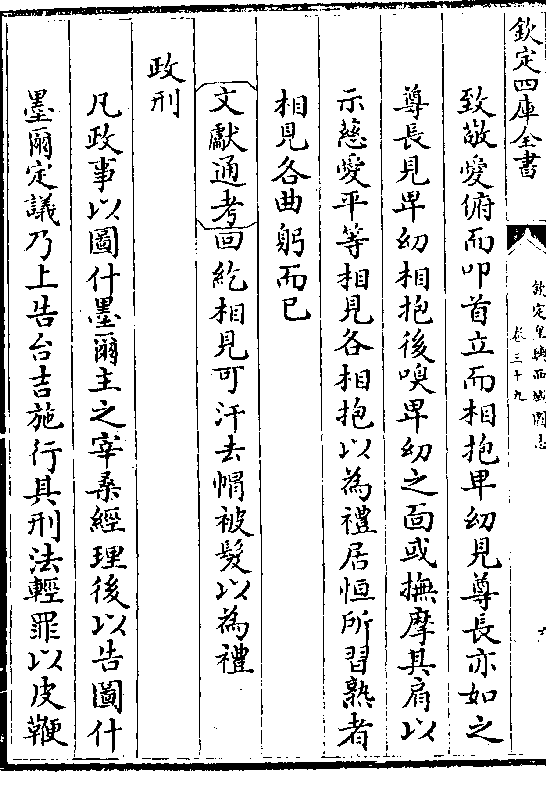 欽定四庫全書
欽定皇輿西域圖志
卷三十九
致敬愛俯而叩首立而相抱卑幼見尊長亦如之
尊長見卑幼相抱後嗅卑幼之面或撫摩其肩以
示慈愛平等相見各相抱以為禮居恒所習熟者
相見各曲躬而已
文獻通考回紇相見可汗去帽被髮以為禮
政刑
凡政事以圖什墨爾主之宰桑經理後以告圖什
墨爾定議乃上告台吉施行其刑法輕罪以皮鞭